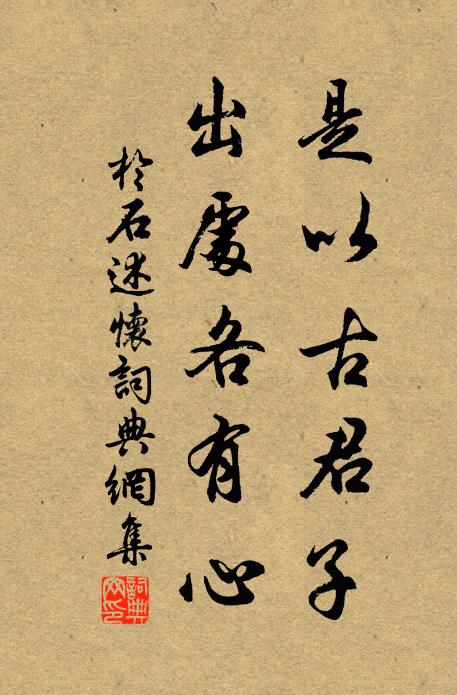 是以古君子
出處各有心
於石述懷詞典網集
詞典
网印